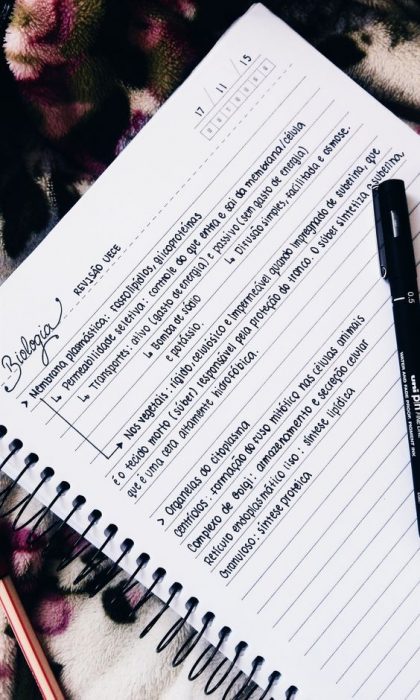 17 / 11 / 15
Biologia
REVISÃO UECE
> Membrana plasmática: fosfolipídios, glicoproteínas
↳ Permeabilidade seletiva: controle do que entra e sai da membrana/célula
↳ Transportes: ativo (gasto de energia) e passivo (sem gasto de energia)
↳ Bomba de sódio e potássio.
↳ Difusão simples, facilitada e osmose.
→ Nos vegetais: rígido, celulósico e impermeável quando impregnado de suberina, que
é o tecido morto (súber) responsável pela proteção do tronco. O súber sintetiza a suberina,
que é uma cera altamente hidrofóbica.
> Organelas do citoplasma
Centríolos: formação do fuso mitótico nas células animais
Complexo de Golgi: armazenamento e secreção celular
Retículo endoplasmático liso: síntese lipídica
Granuloso: síntese proteica
0.5
uni pin